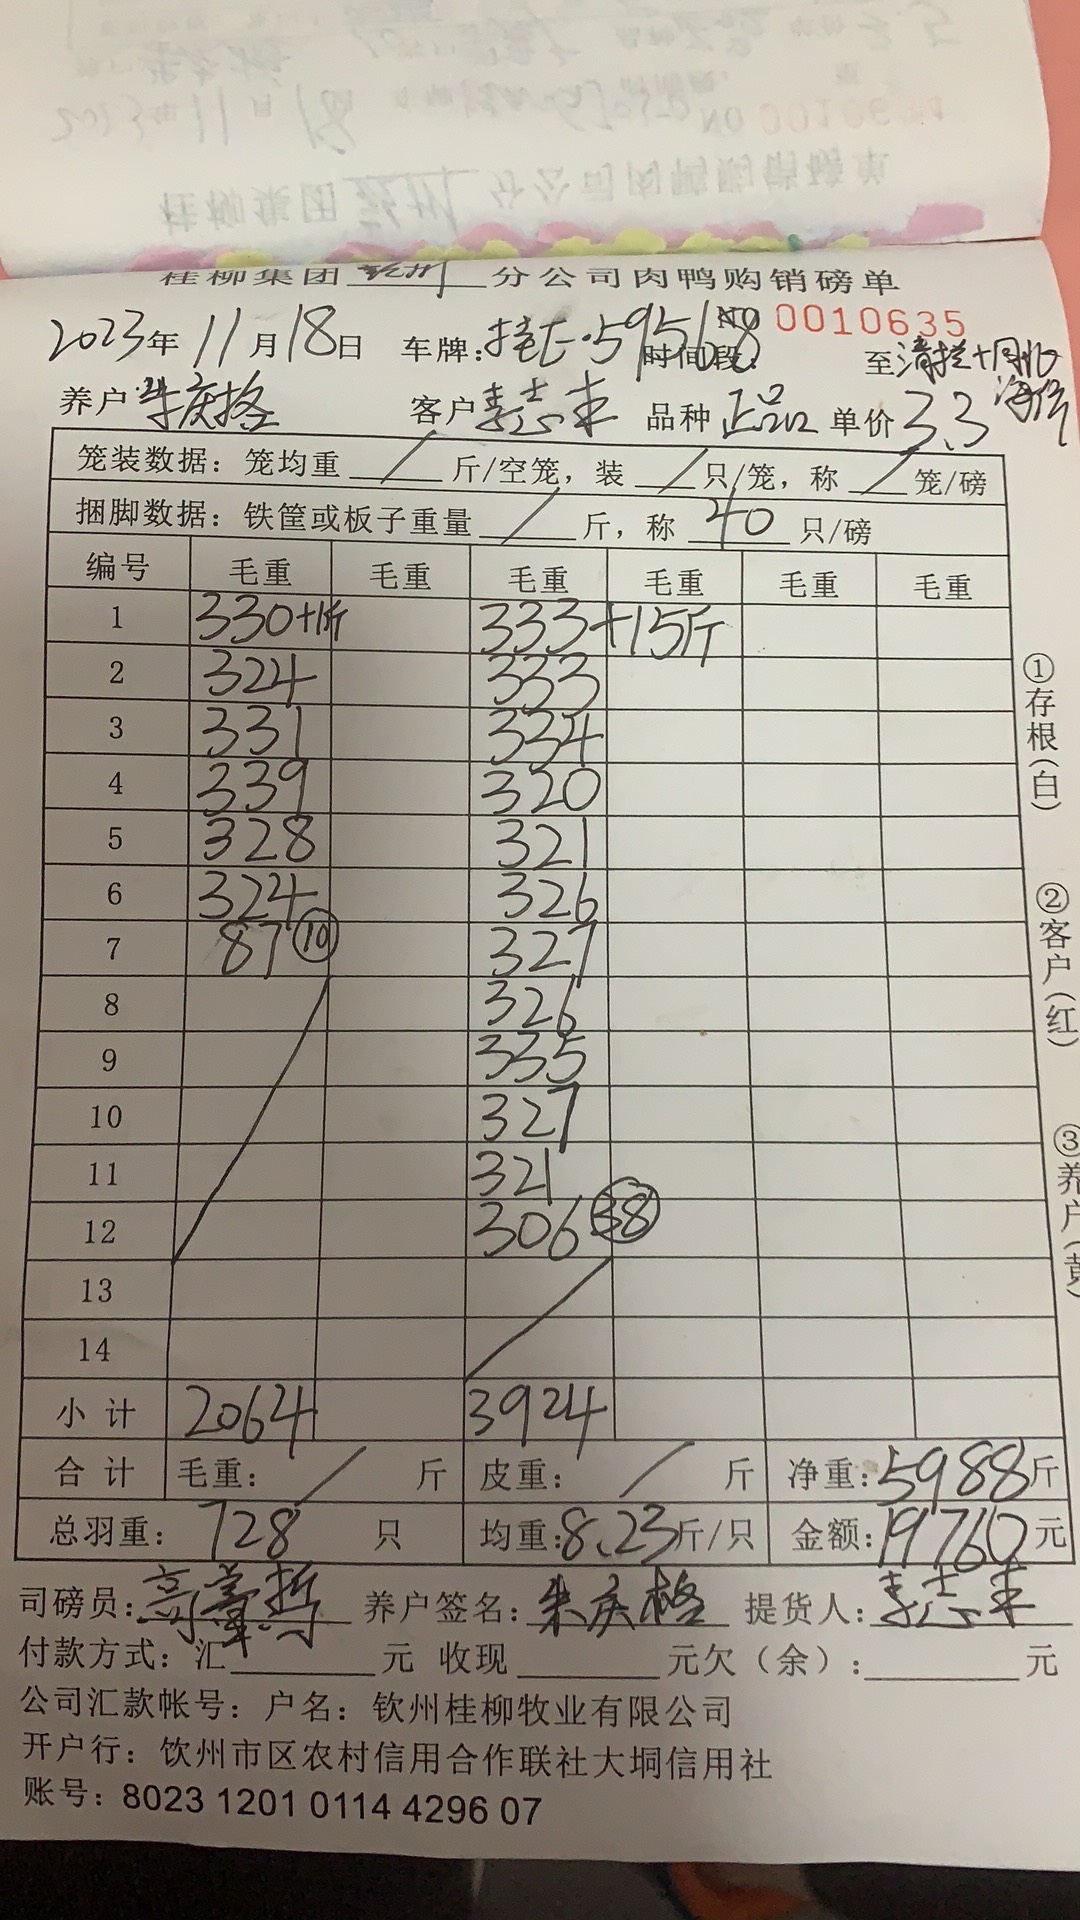 桂柳集团 钦州 分公司肉鸭购销磅单
NO 0010635
2023年 11月 18日 车牌: 时间段: 至
养户 朱庆格 客户 李志丰 品种 正品 单价 3.3
笼装数据：笼均重 / 斤/空笼，装 / 只/笼，称 / 笼/磅
捆脚数据：铁筐或板子重量 / 斤，称 40 只/磅
编号 毛重 毛重 毛重 毛重 毛重 毛重
1 330+1斤 333+15斤
2 324 333
3 331 334
4 339 320
5 328 321
6 324 326
7 87 ⑩ 327
8 326
9 335
10 327
11 321
12 306 ㊳
13
14
小计 2064 3924
合计 毛重： / 斤 皮重： / 斤 净重：5988斤
总羽重：728 只 均重：8.23斤/只 金额：19760元
司磅员： 养户签名：朱庆格 提货人：李志丰
付款方式：汇 元 收现 元欠（余）： 元
公司汇款帐号：户名：钦州桂柳牧业有限公司
开户行：钦州市区农村信用合作联社大垌信用社
账号：8023 1201 0114 4296 07
①存根（白）
②客户（红）
③养户（黄）